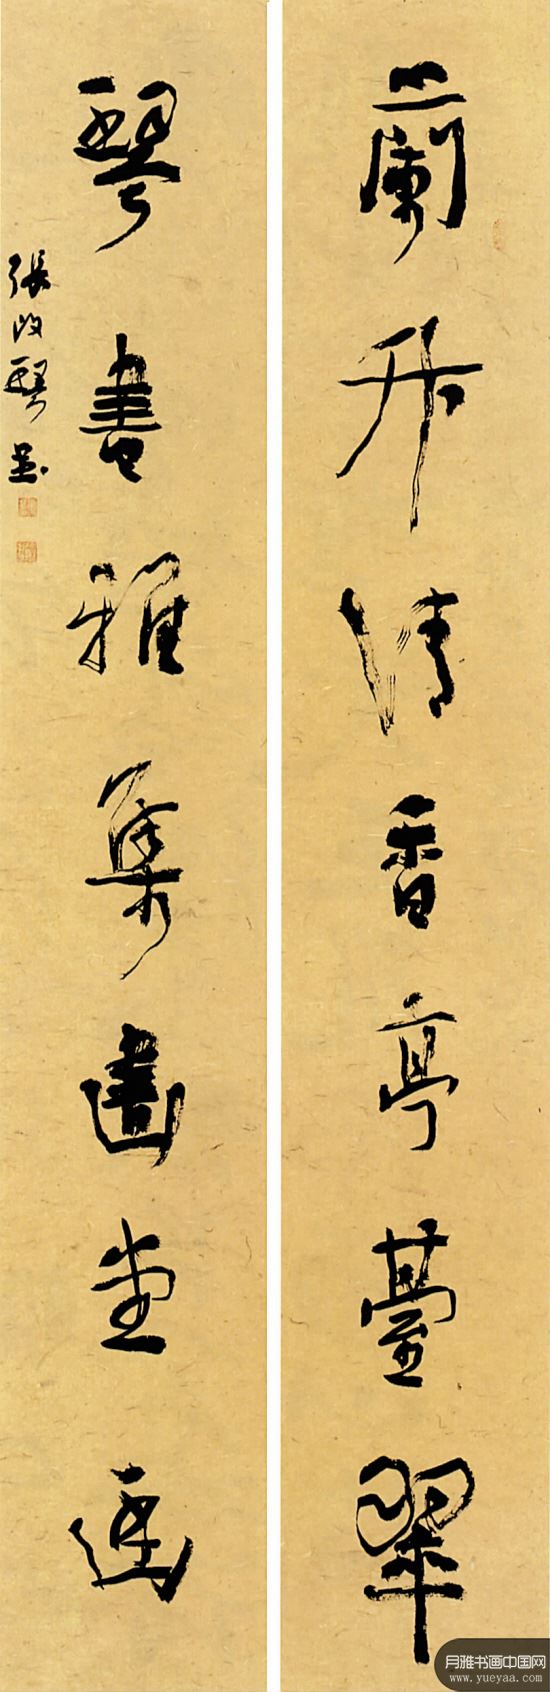 蘭升清香亭臺翠
琴書雅集畫堂
張改琴
月雅书画中国网
www.yueyaa.com